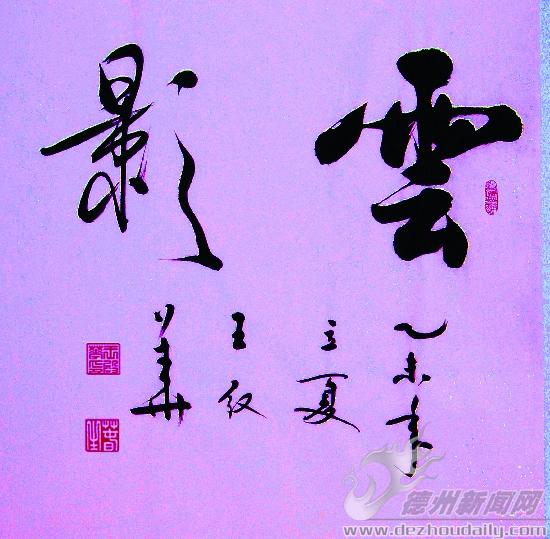 雲影
乙未年
立夏
王
華
德州新闻网
www.dezhoudaily.com